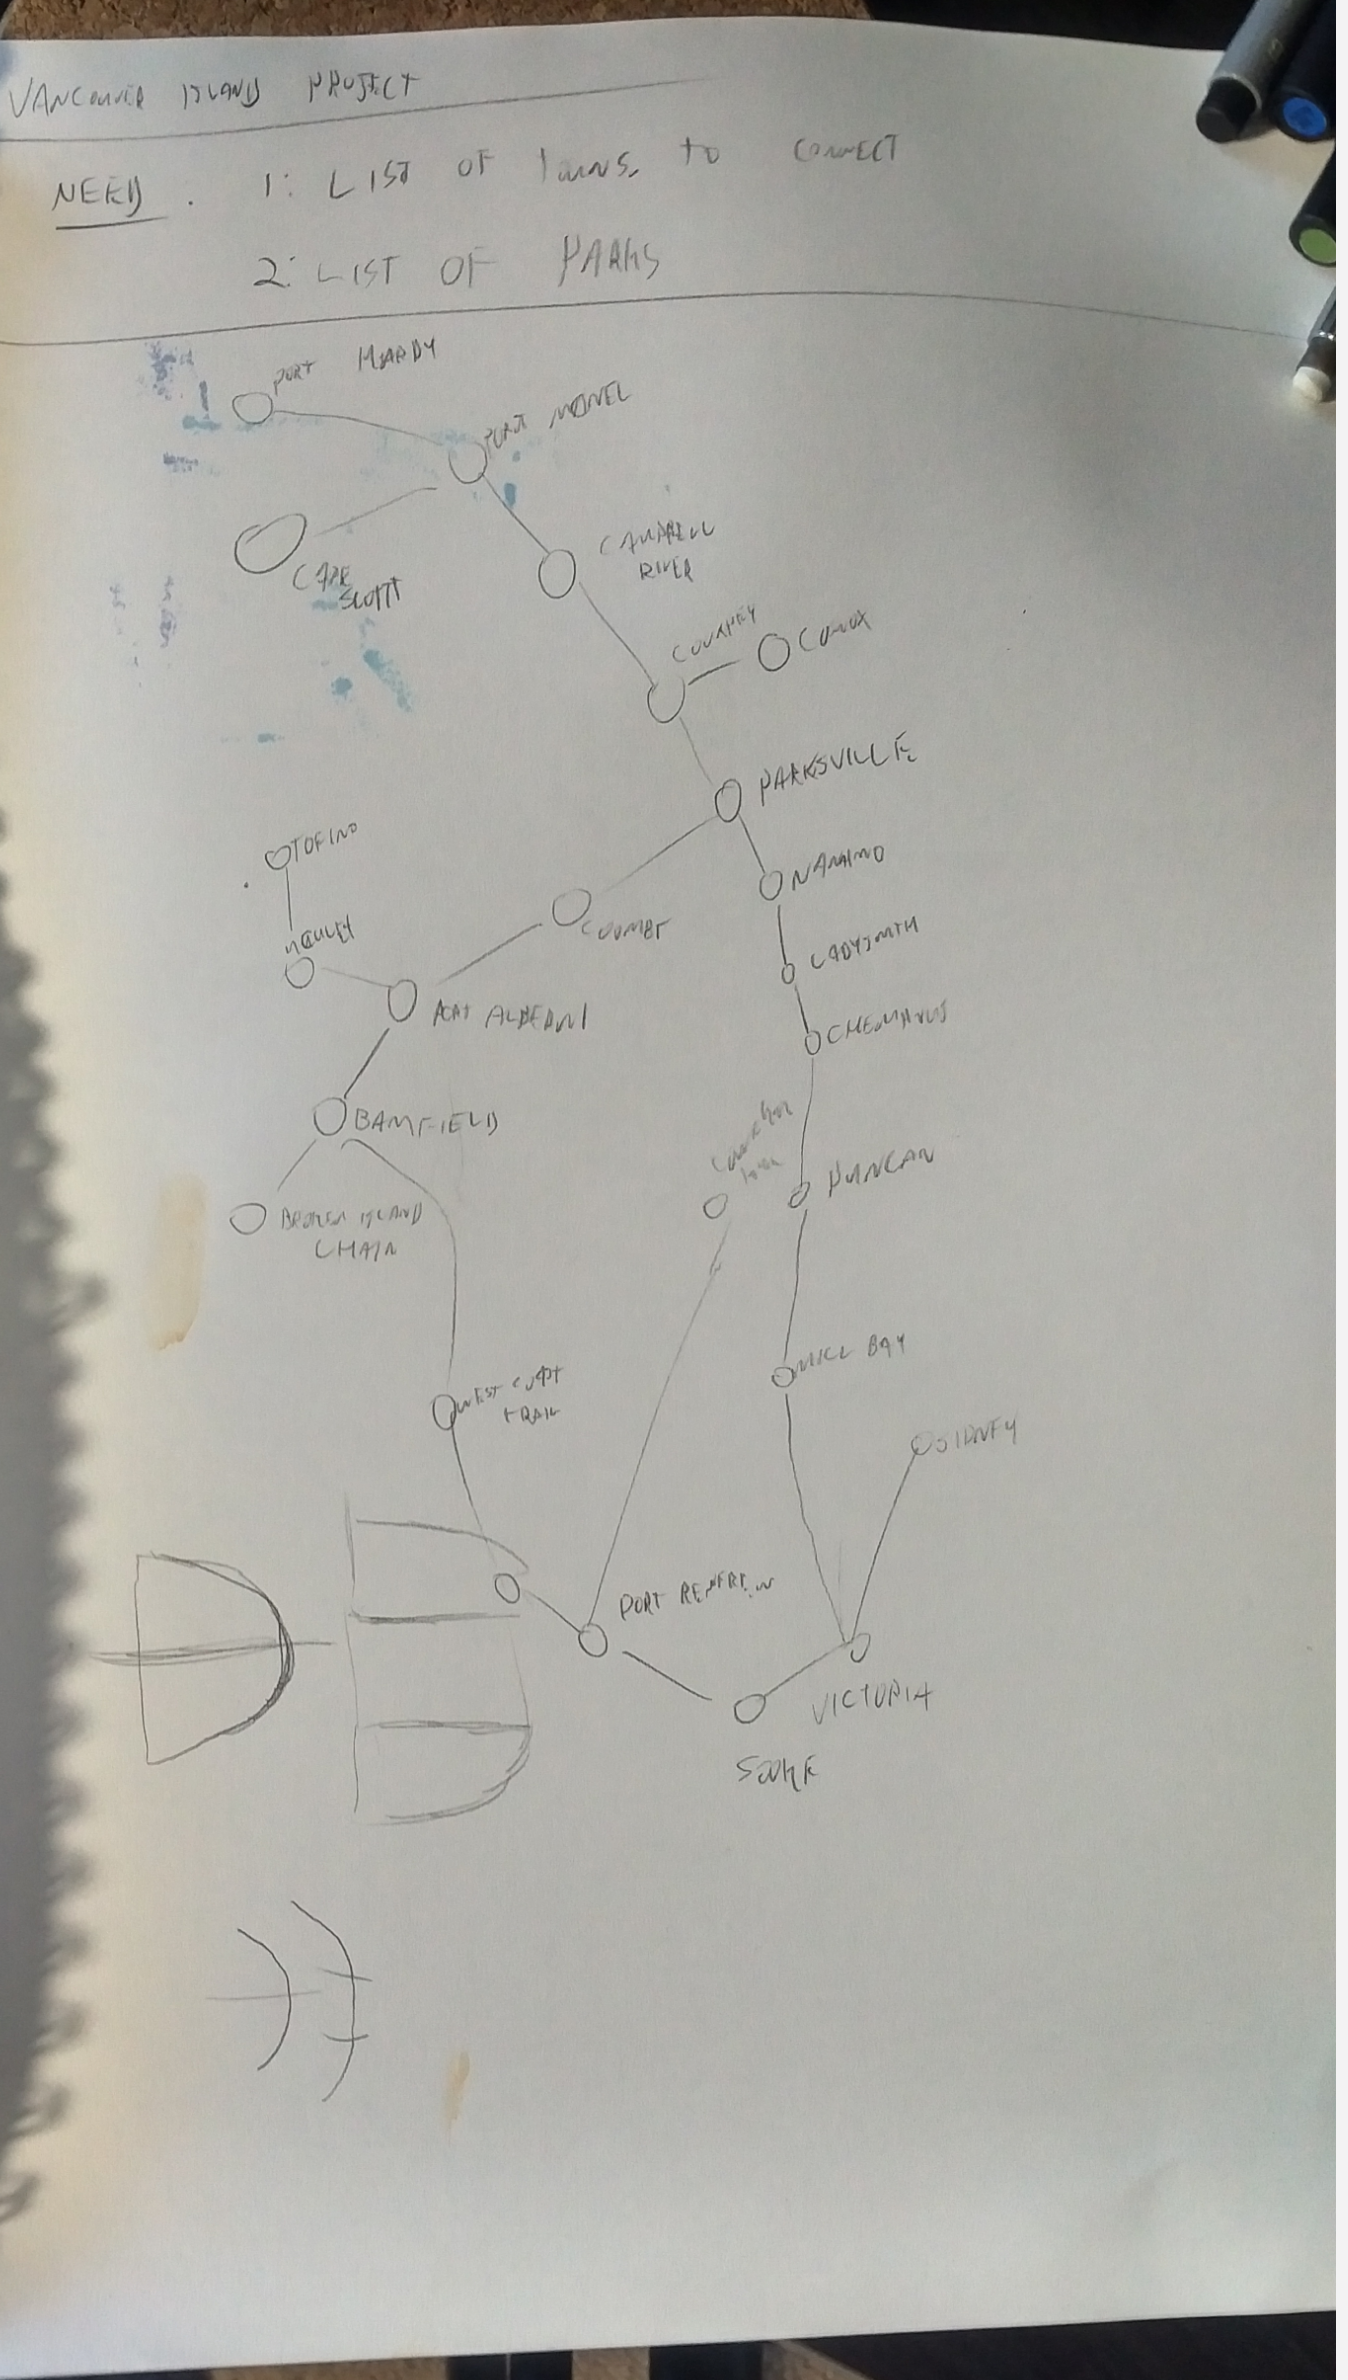 VANCOUVER ISLAND PROJECT
NEED. 1: LIST OF TOWNS. TO CONNECT
2: LIST OF PARKS
PORT HARDY
PORT
CAPE
SCOTT
CAMPBELL
RIVER
COMOX
PARKSVILLE
TOFINO
NANAIMO
COOMBS
LADYSMITH
PORT ALBERNI
CHEMAINUS
BAMFIELD
DUNCAN
BROKEN ISLAND
CHAIN
MILL BAY
WEST COAST
TRAIL
SIDNEY
PORT RENFREW
VICTORIA
SOOKE